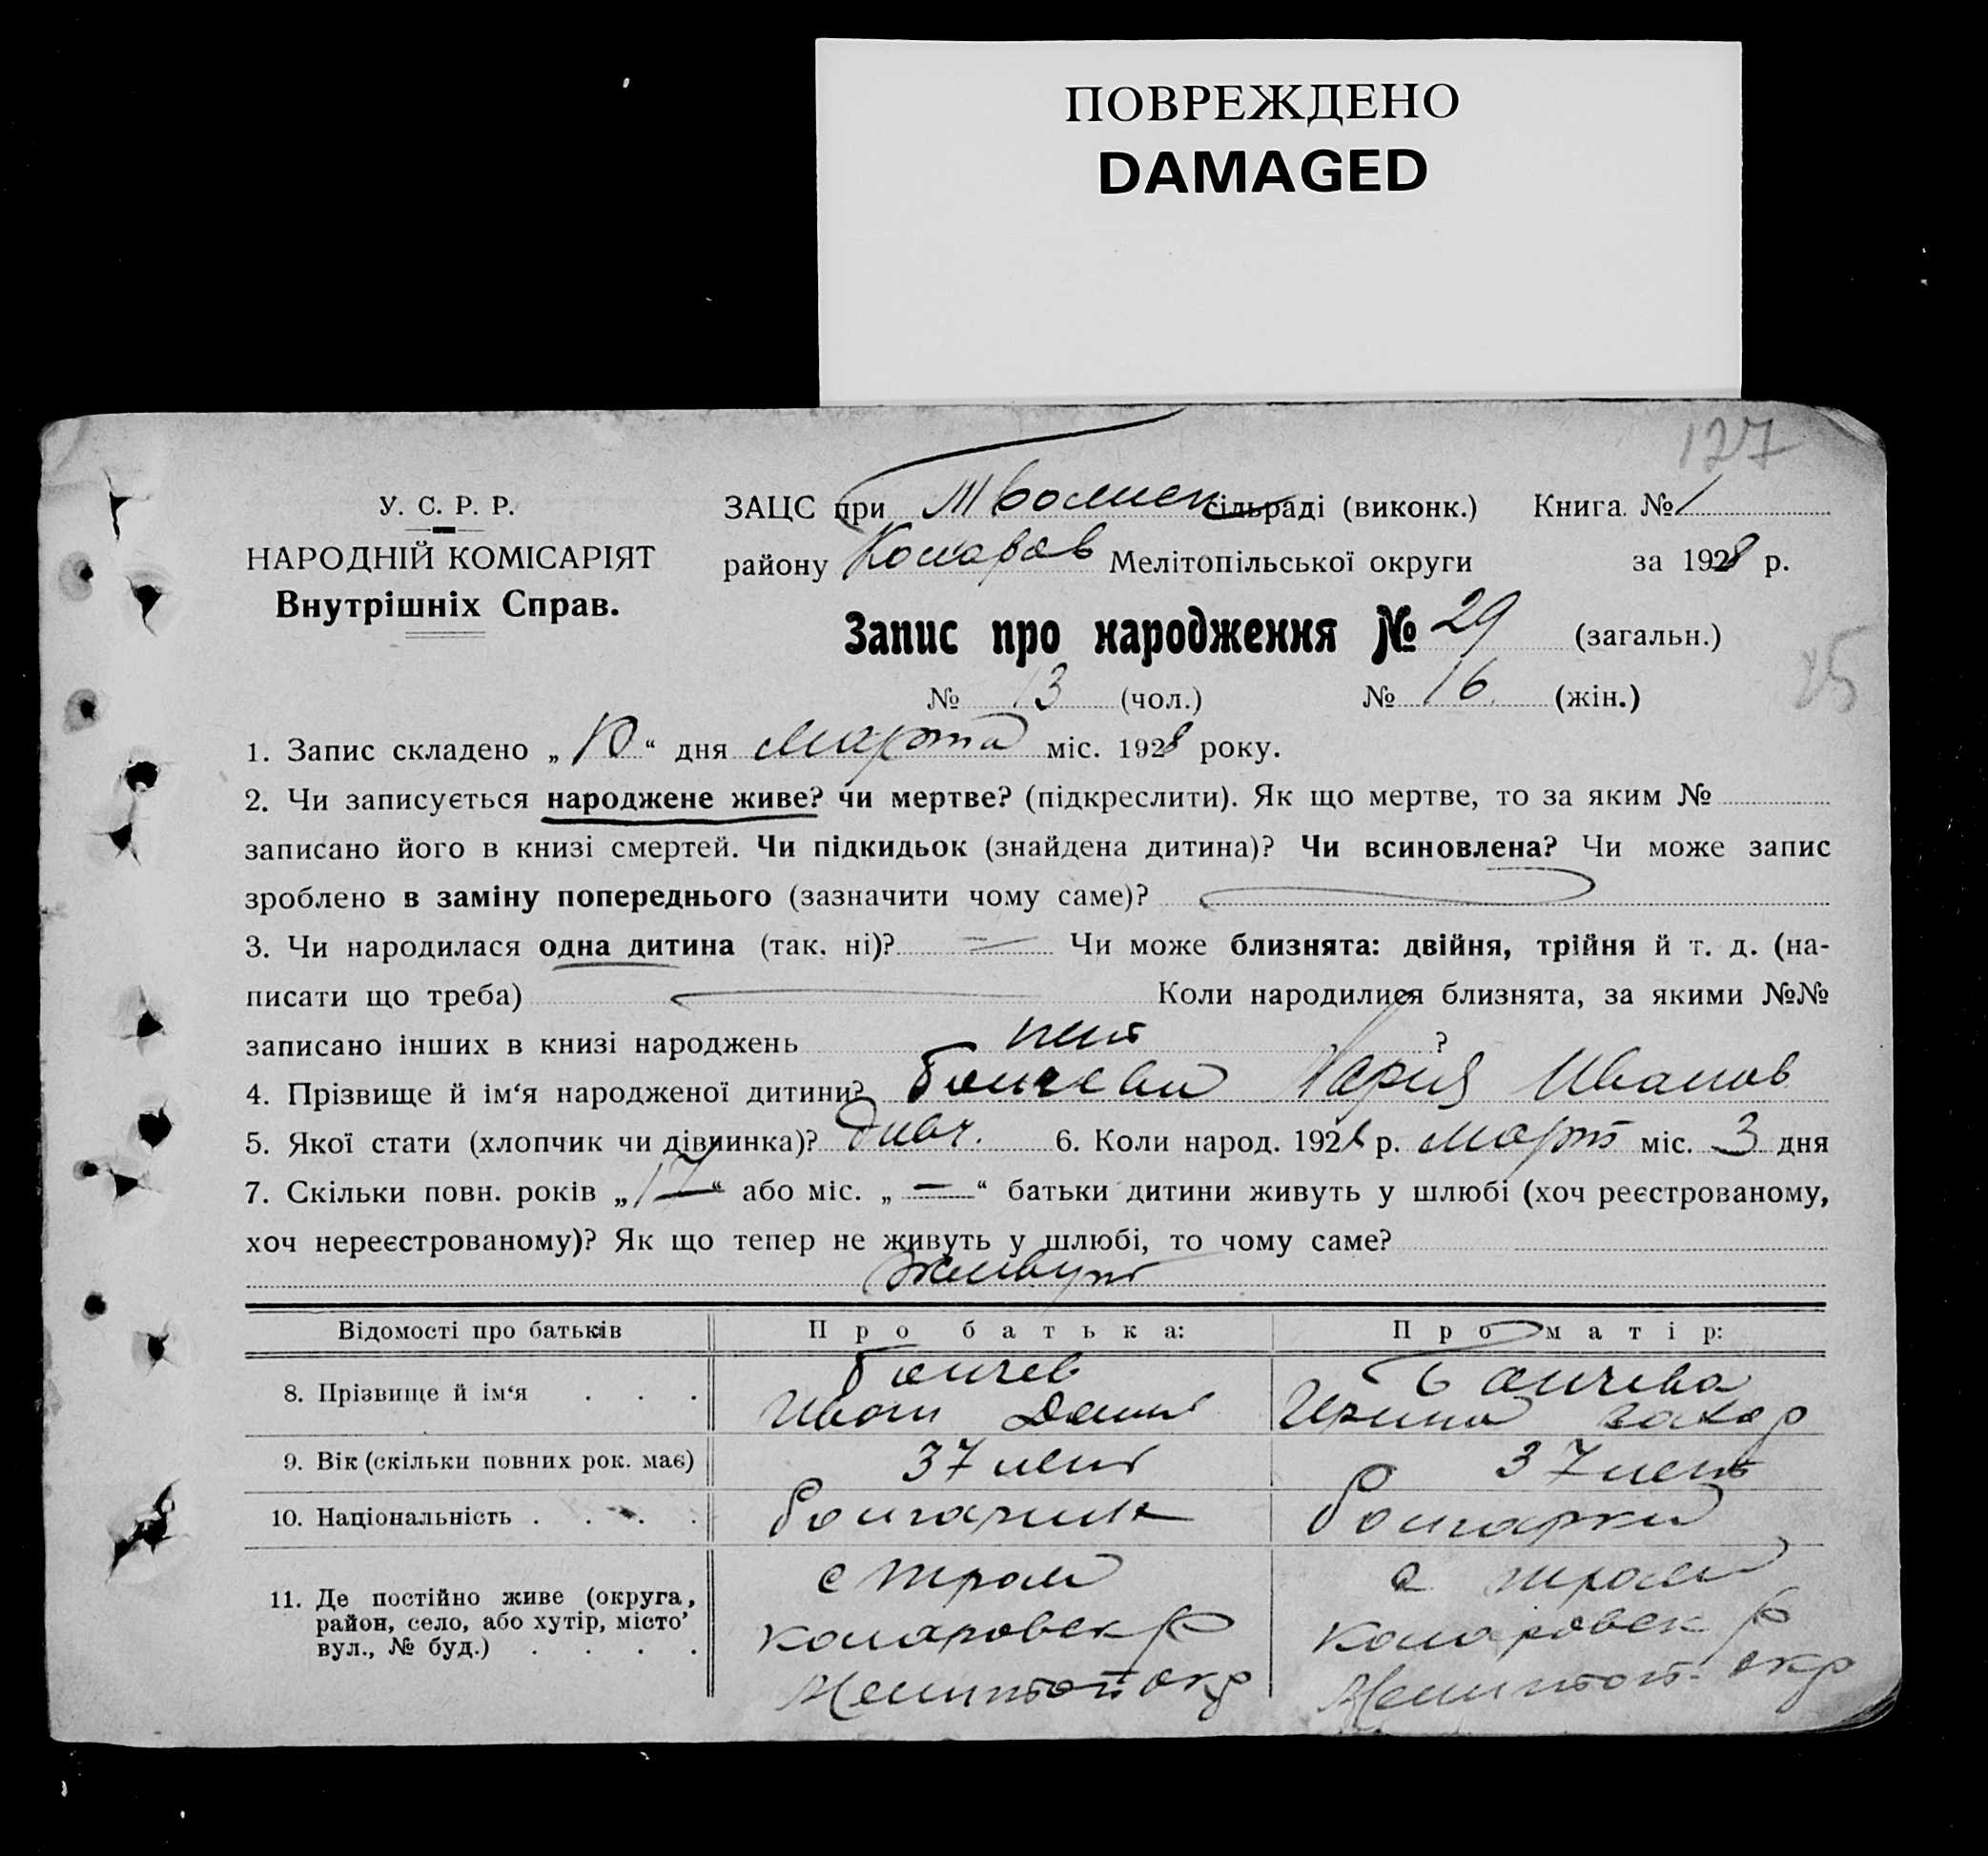 ПОВРЕЖДЕНО
DAMAGED
127
У. С. Р. Р.
НАРОДНІЙ КОМІСАРІЯТ
Внутрішніх Справ.
ЗАЦС при сільраді (виконк.) Книга № 1
району Комаров Мелітопільської округи за 1928 р.
Запис про народження № 29 (загальн.)
25
№ 13 (чол.) № 16 (жін.)
1. Запис складено „10“ дня Марта міс. 1928 року.
2. Чи записується народжене живе? чи мертве? (підкреслити). Як що мертве, то за яким №
записано його в книзі смертей. Чи підкидьок (знайдена дитина)? Чи всиновлена? Чи може запис
зроблено в заміну попереднього (зазначити чому саме)?
3. Чи народилася одна дитина (так. ні)? Чи може близнята: двійня, трійня й т. д. (на-
писати що треба) Коли народилися близнята, за якими №№
записано інших в книзі народжень нет ?
4. Прізвище й ім‘я народженої дитини? Мария Иванов
5. Якої стати (хлопчик чи дівчинка)? 6. Коли народ. 1928 р. март міс. 3 дня
7. Скільки повн. років „17“ або міс. „—“ батьки дитини живуть у шлюбі (хоч реєстрованому,
хоч нереєстрованому)? Як що тепер не живуть у шлюбі, то чому саме?
живут
Відомості про батьків Про батька: Про матір:
8. Прізвище й ім‘я . . .
Иван Данил Ирина Захар
9. Вік (скільки повних рок. має) 37 лет 37 лет
10. Національність . . . . Болгарин Болгарка
11. Де постійно живе (округа, район, село, або хутір, місто’ вул., № буд.) . . . .
с Трояни с Трояни
комаровск р комаровск р
Мелитоп окр Мелитоп. окр